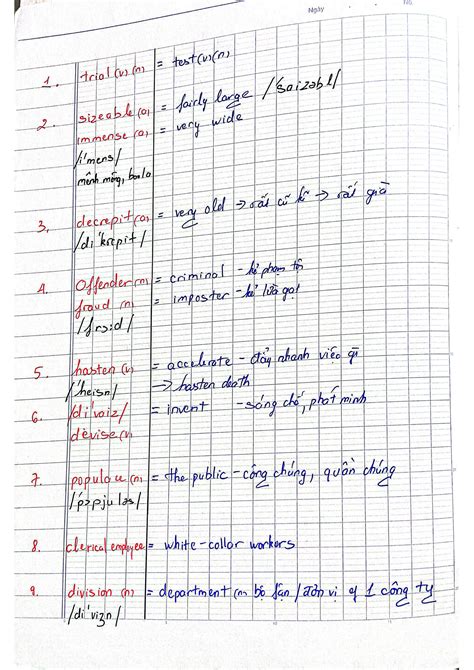 Ngày No.
1. trial (v) (n) = test (v) (n)
2. sizeable (a) = fairly large /'saizəbl/
immense (a) = very wide
/i'mens/
mênh mông, bao la
3. decrepit (a) = very old → rất cũ kĩ → rất già
/di'krepit/
4. Offender (n) = criminal - kẻ phạm tội
fraud (n) = imposter - kẻ lừa gạt
/frɔ:d/
5. hasten (v) = accelerate - đẩy nhanh việc gì
/'heisn/ → hasten death
6. /di'vaiz/ = invent - sáng chế, phát minh
devise (n
7. populace (n) = the public - công chúng, quần chúng
/'pɔpjuləs/
8. clerical employee = white-collar workers
9. division (n) = department (n bộ fận / đơn vị of 1 công ty
/di'viʒn/